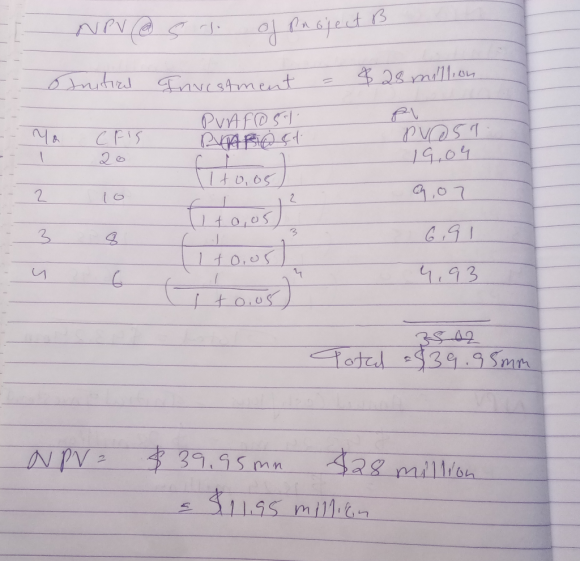 NPV@ 5 % of Project B
Initial Investment = $ 28 million
PVAF@5% PV
Yr CF'S PV@51
1 20 (1/1+0.05) 19.04
2 10 (1/1+0.05)² 9.07
3 8 (1/1+0.05)³ 6.91
4 6 (1/1+0.05)⁴ 4.93
35.02
Total = $39.95mm
NPV = $ 39.95 mn $28 million
= $11.95 million